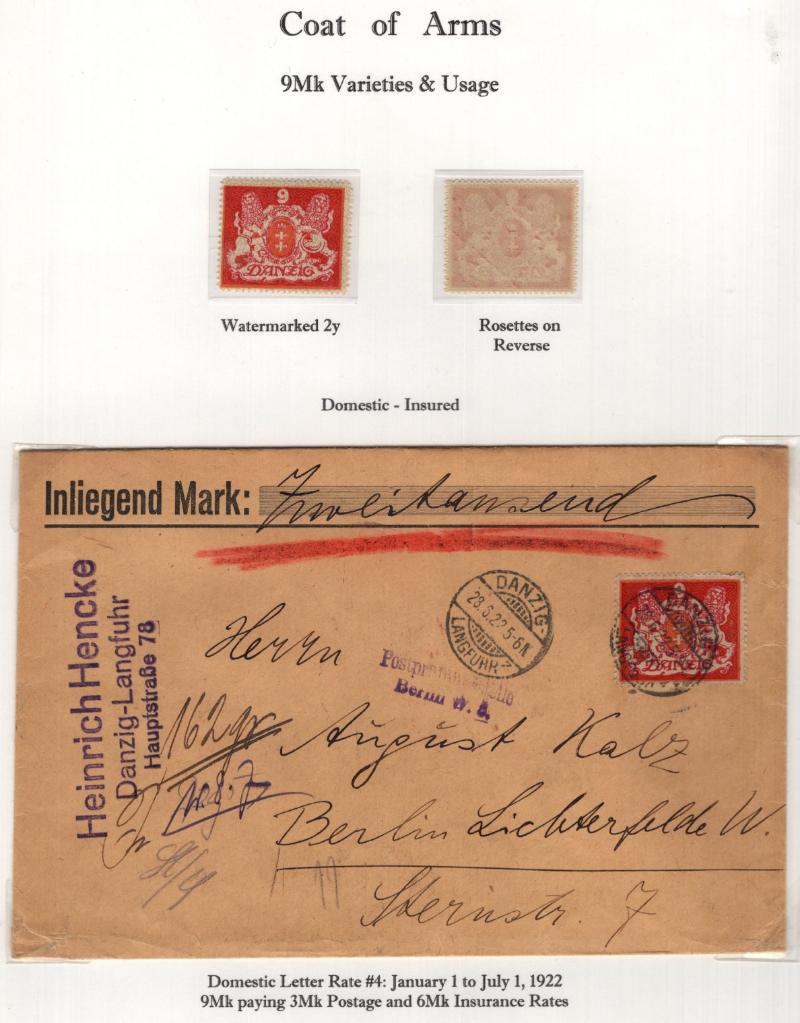 Coat of Arms
9Mk Varieties & Usage
9
DANZIG
Watermarked 2y
Rosettes on
Reverse
Domestic - Insured
Inliegend Mark: Zweitausend
Heinrich Hencke
Danzig-Langfuhr
Hauptstraße 78
DANZIG-
28.6.22.5-6N
LANGFUHR
9
DANZIG
Herrn
Berlin W. 8.
162 gr
August Kalz
Berlin Lichterfelde W.
Sternstr. 7
Domestic Letter Rate #4: January 1 to July 1, 1922
9Mk paying 3Mk Postage and 6Mk Insurance Rates